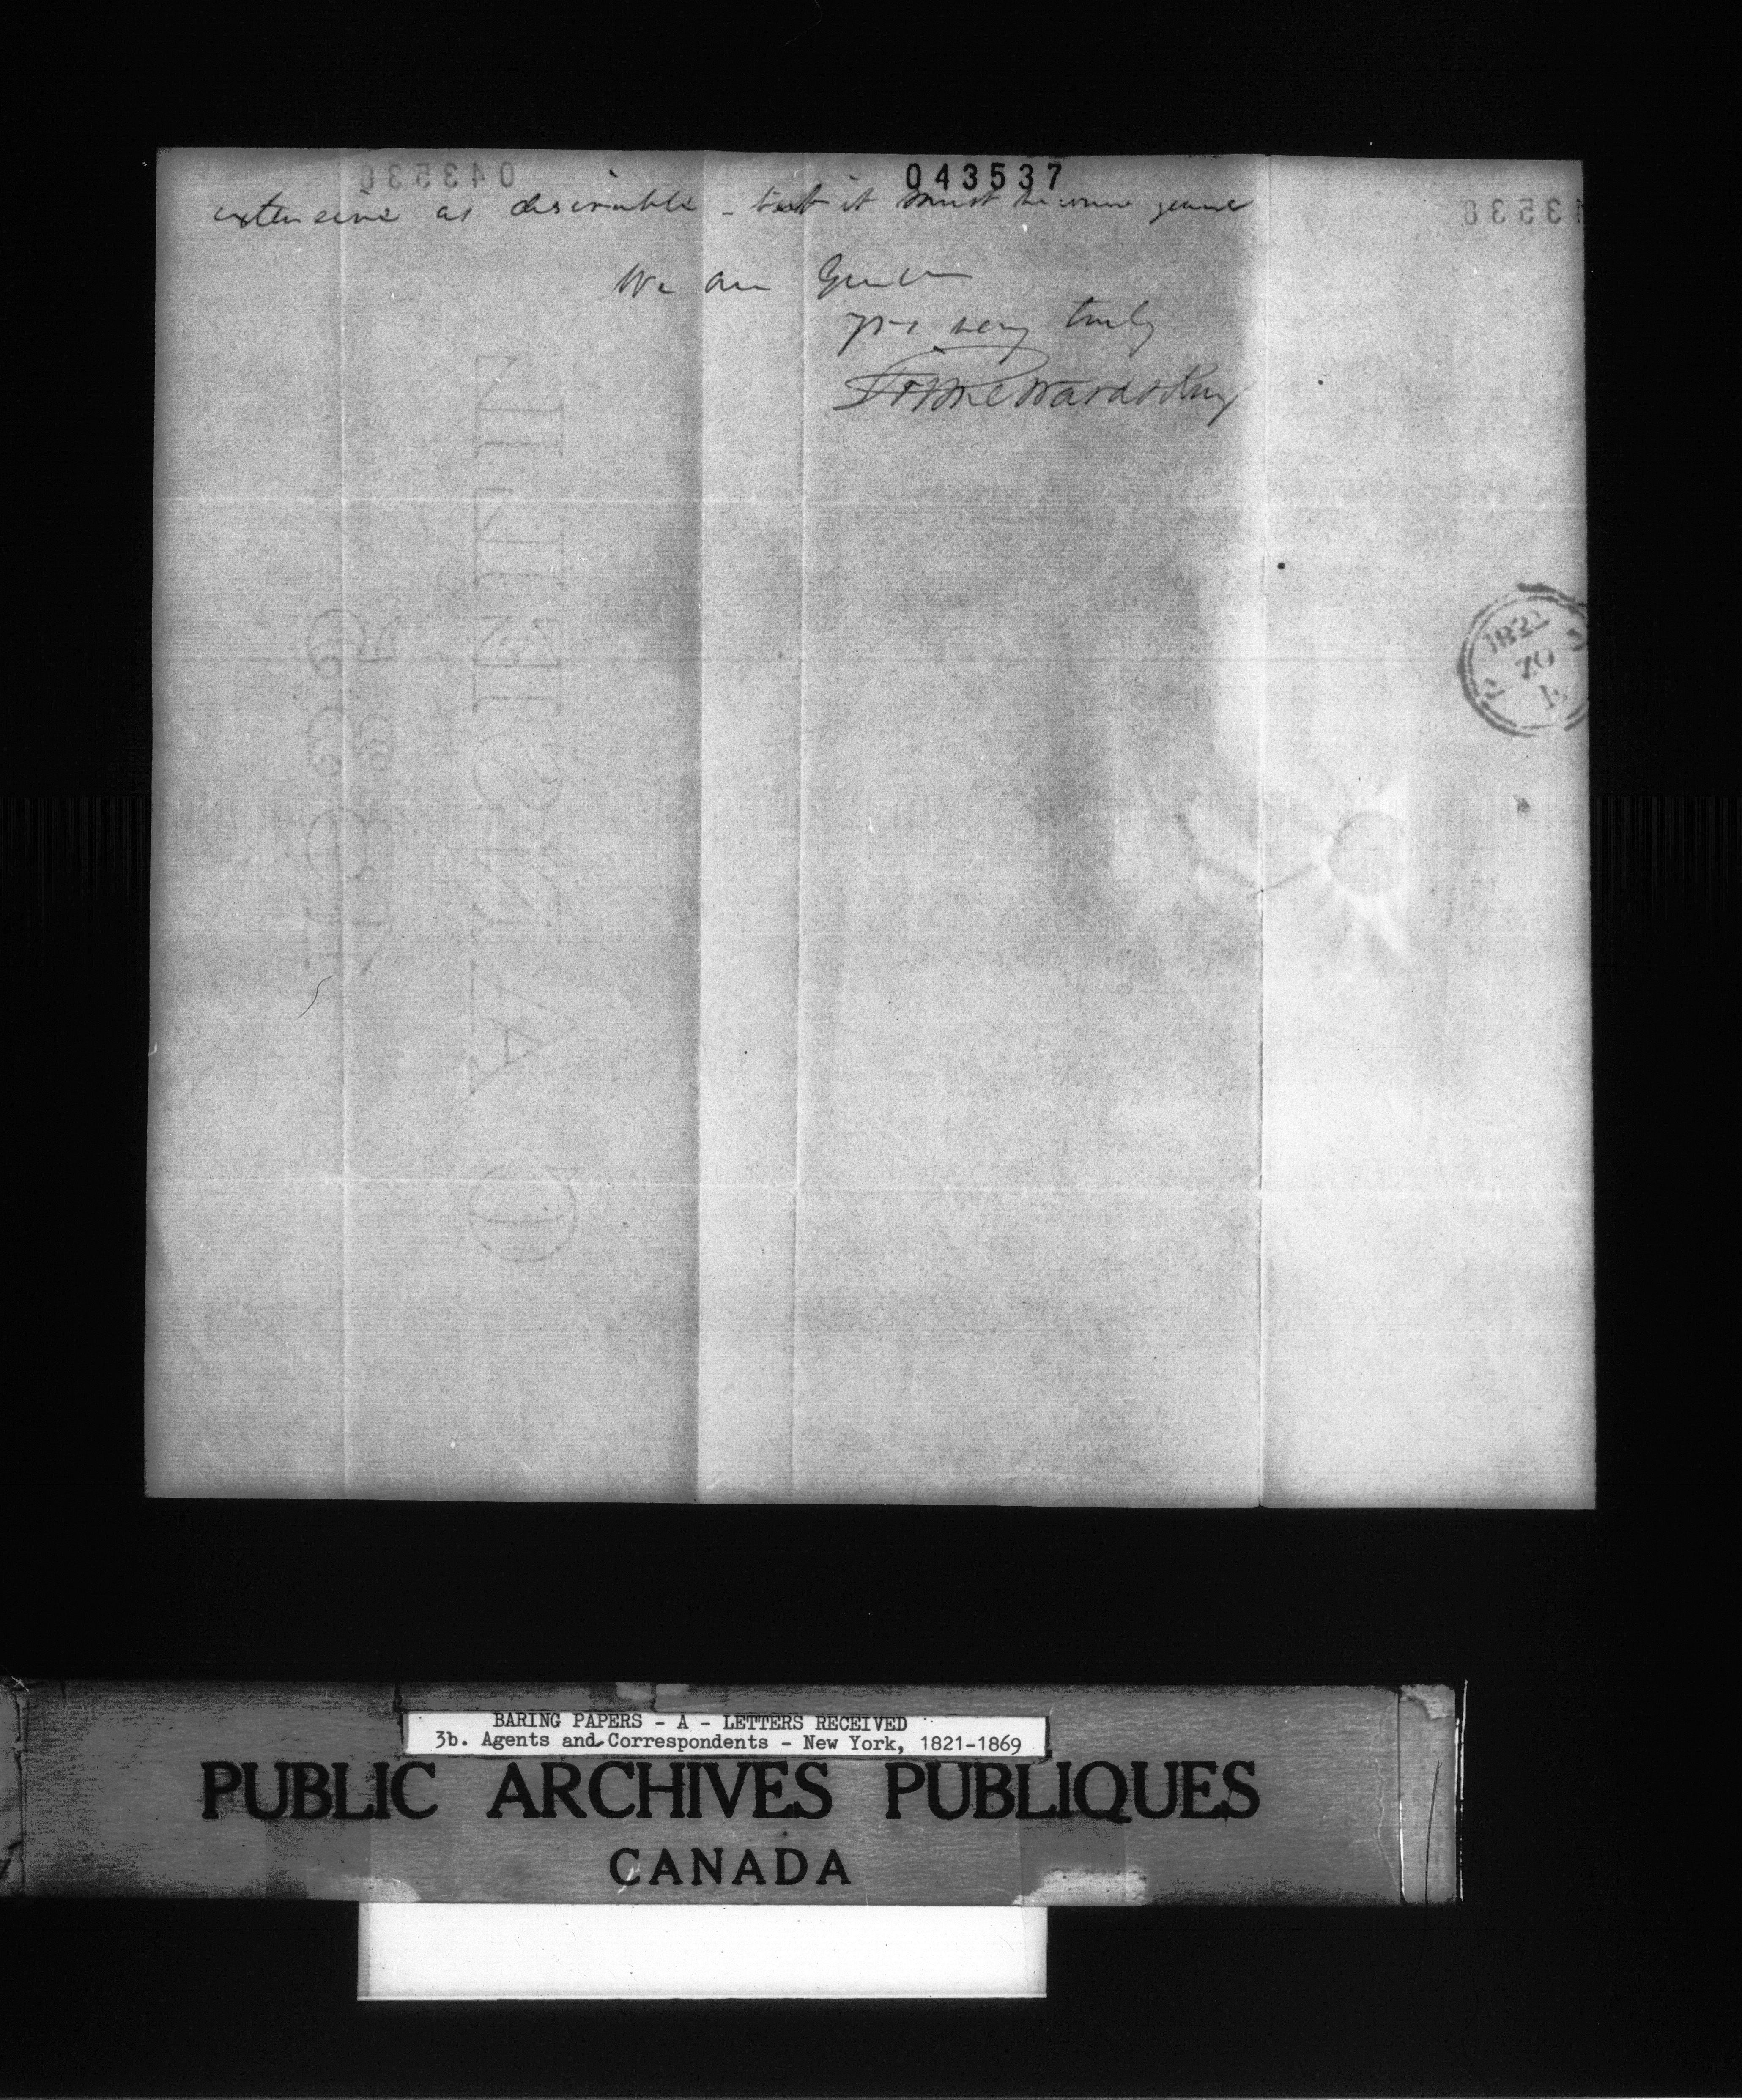 043537
extensive as desirable - but it must become general
We are Gentn
yrs very truly
Prime Ward & King
1832
BARING PAPERS - A - LETTERS RECEIVED
3b. Agents and Correspondents - New York, 1821-1869
PUBLIC ARCHIVES PUBLIQUES
CANADA